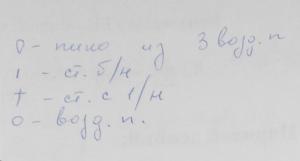 – пико из 3 возд. п
– ст. б/н
† – ст. с 1/н
о – возд. п.